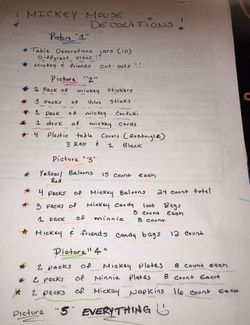 MICKEY MOUSE
DECORATIONS!
Picture "1"
* Table Decorations jars (10)
Different sizes!!
* Mickey & friends Cut-outs!!
Picture "2"
* 1 Pack of mickey stickers
* 3 Packs of Glue Sticks
* 1 Pack of mickey Confetti
* 1 deck of mickey cards
* 4 Plastic table Covers (Rectangle)
3 Red & 1 Black
Picture "3"
* Yellow/ Baloons 15 count each
Red
* 4 packs of Mickey Baloons 24 count total
* 3 packs of Mickey Candy loot Bags
8 count each
1 pack of minnie 8 count
* Mickey & friends candy bags 12 count
Picture "4"
* 2 packs of Mickey Plates 8 count each
* 2 packs of Minnie Plates 8 count each
* 2 packs of Mickey Napkins 16 count each
Picture "5" EVERYTHING